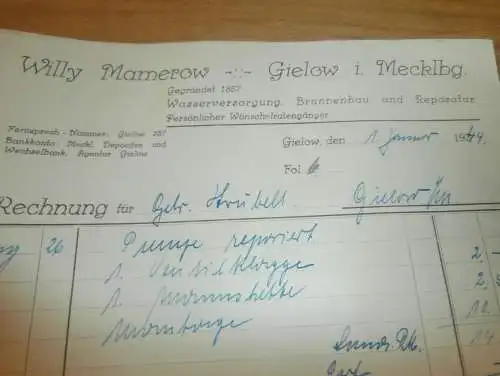 Willy Mamerow -::- Gielow i. Mecklbg.
Gegründet 1887
Wasserversorgung, Brunnenbau und Reparatur
Persönlicher
Fernsprech-Nummer: Gielow 287
Bankkonto: Meckl. Depositen und
Wechselbank, Agentur Gielow
Gielow, den 1 Januar 1944.
Fol. 6
Rechnung für Gebr. Strubelt Gielow
26 Pumpe repariert 2,
1 Ventilklappe 2,
1 Manschette
Montage 10
14